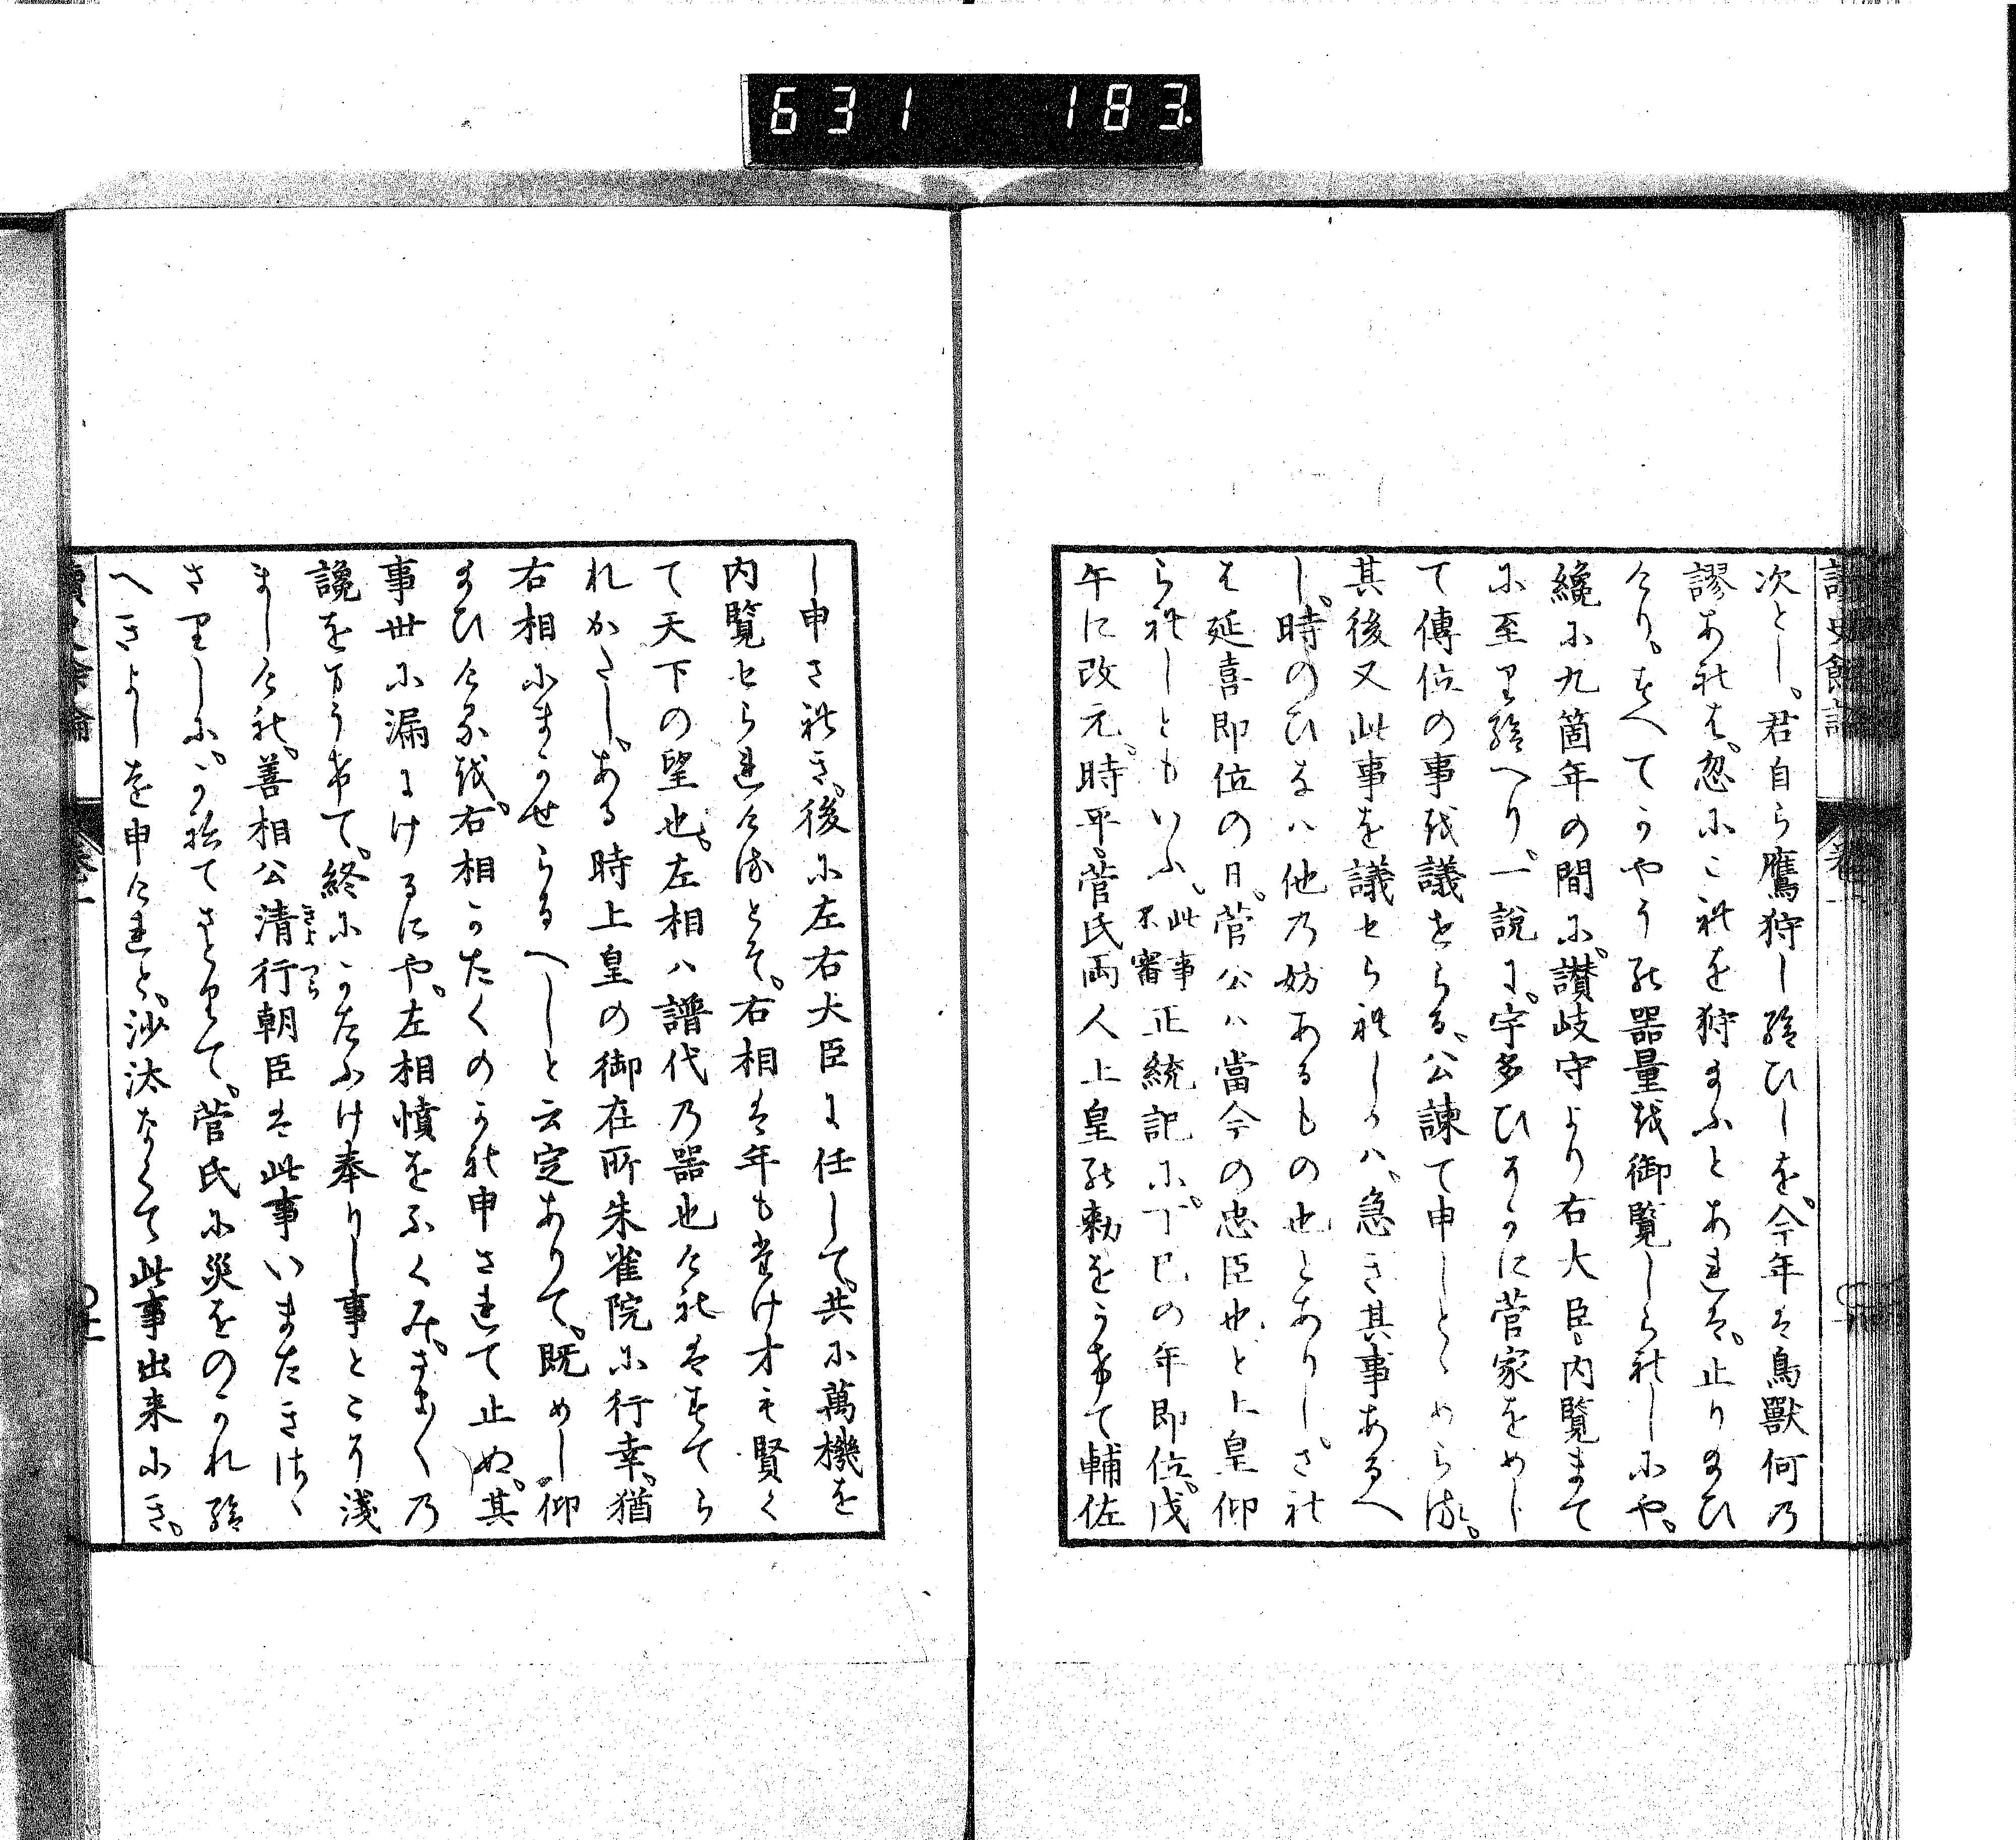 631 183.
讀史餘論 卷一
次とし。君自ら鷹狩し給ひしを。今年は鳥獸何の
謬あれは。忽にこれを狩給ふとあれは。止り給ひ
けり。すへてかやうの器量を御覽しられしにや。
纔に九箇年の間に。讃岐守より右大臣内覽まて
に至り給へり。一說に。宇多ひそかに菅家をめし
て傳位の事を議せらる。公諫て申しとゝめらる。
其後又此事を議せられしかは。急き其事あるへ
し。時のひなは他の妨あるもの也とありし。され
は延喜即位の日。菅公は當今の忠臣也と上皇仰
られしともいふ。此事不審 正統記に。丁巳の年即位。戊
午に改元。時平。菅氏兩人上皇の勅をうけて輔佐
し申されき。後に左右大臣に任して。共に萬機を
内覽せられけるとそ。右相は年もたけ才も賢く
て天下の望也。左相は譜代の器也けれはすてら
れかたし。ある時上皇の御在所朱雀院に行幸。猶
右相にまかせらるへしと云定ありて。既めし仰
給ひけるを。右相かたくのかれ申されて止ぬ。其
事世に漏にけるにや。左相憤をふくみ。さま〱の
讒をまうけて。終にかたふけ奉りし事こそ淺
ましけれ。善相公清行朝臣は此事いまたきさゝ
きよ つら
さりしに。かねてさとりて。菅氏に災をのかれ給
へきよしを申けれと。沙汰なくて此事出来にき。
讀史餘論 卷一